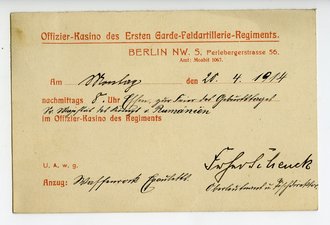 Offizier-Kasino des Ersten Garde-Feldartillerie-Regiments.
BERLIN NW. 5, Perlebergerstrasse 56.
Amt: Moabit 1067.
Am Montag den 20. 4. 1914
nachmittags 8. Uhr Essen, zur Feier des Geburtstages
Sr Majestät des Königs v. Rumänien
im Offizier-Kasino des Regiments
U. A. w. g.
Anzug: Waffenrock Epauletts.
Frhr Schenck
Oberleutnant u. Tischdirektor